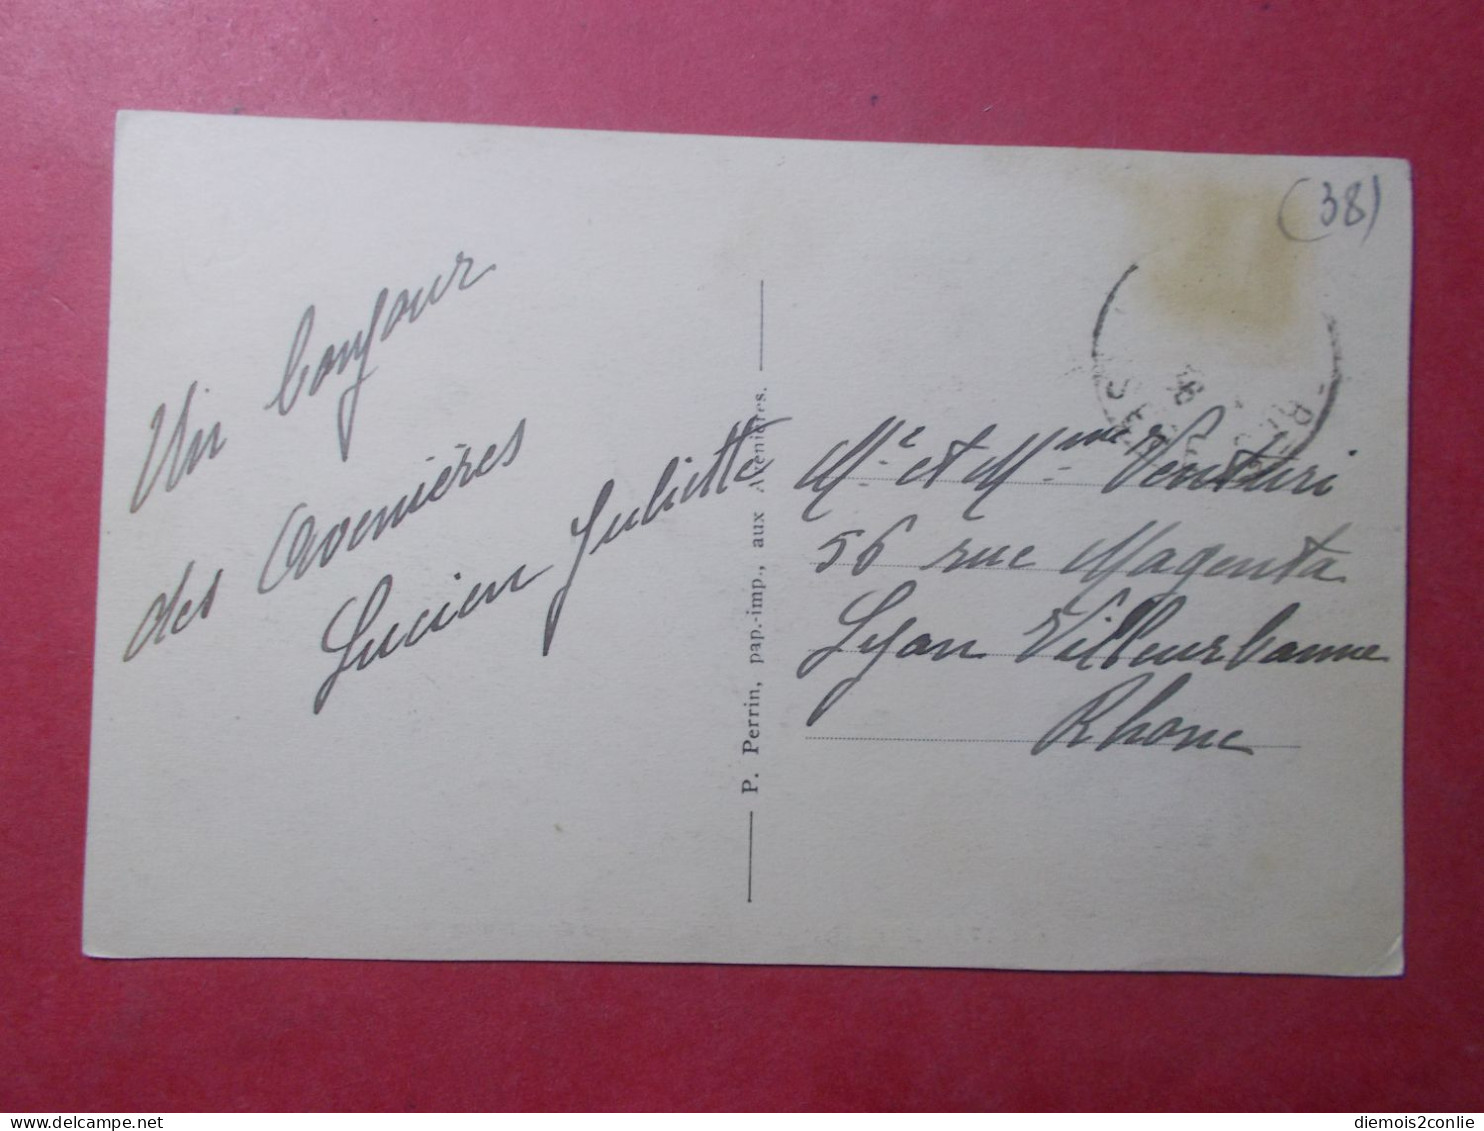 (38)
Un bonjour
des Avenières
Lucien Juliette
P. Perrin, pap.-imp., aux Avenières.
ISERE
Mr et Mme Venturi
56 rue Magenta
Lyon Villeurbanne
Rhone
diemois2conlie